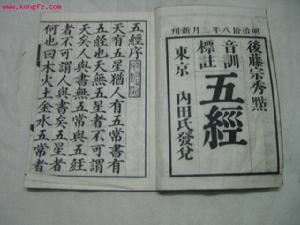 www.kongfz.com
明治拾八年三月新刊
後藤宗秀點
音訓
標註
五經
東京 内田氏發兌
五經序
天有五星猶人有五常書有
五經也天無五星不可謂
天矣人與書無五常與五經
者不可謂人與書矣五星者
何也曰木火土金水五常者